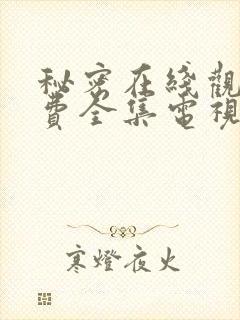 秘密在綫觀
費全集電視
寒燈夜火